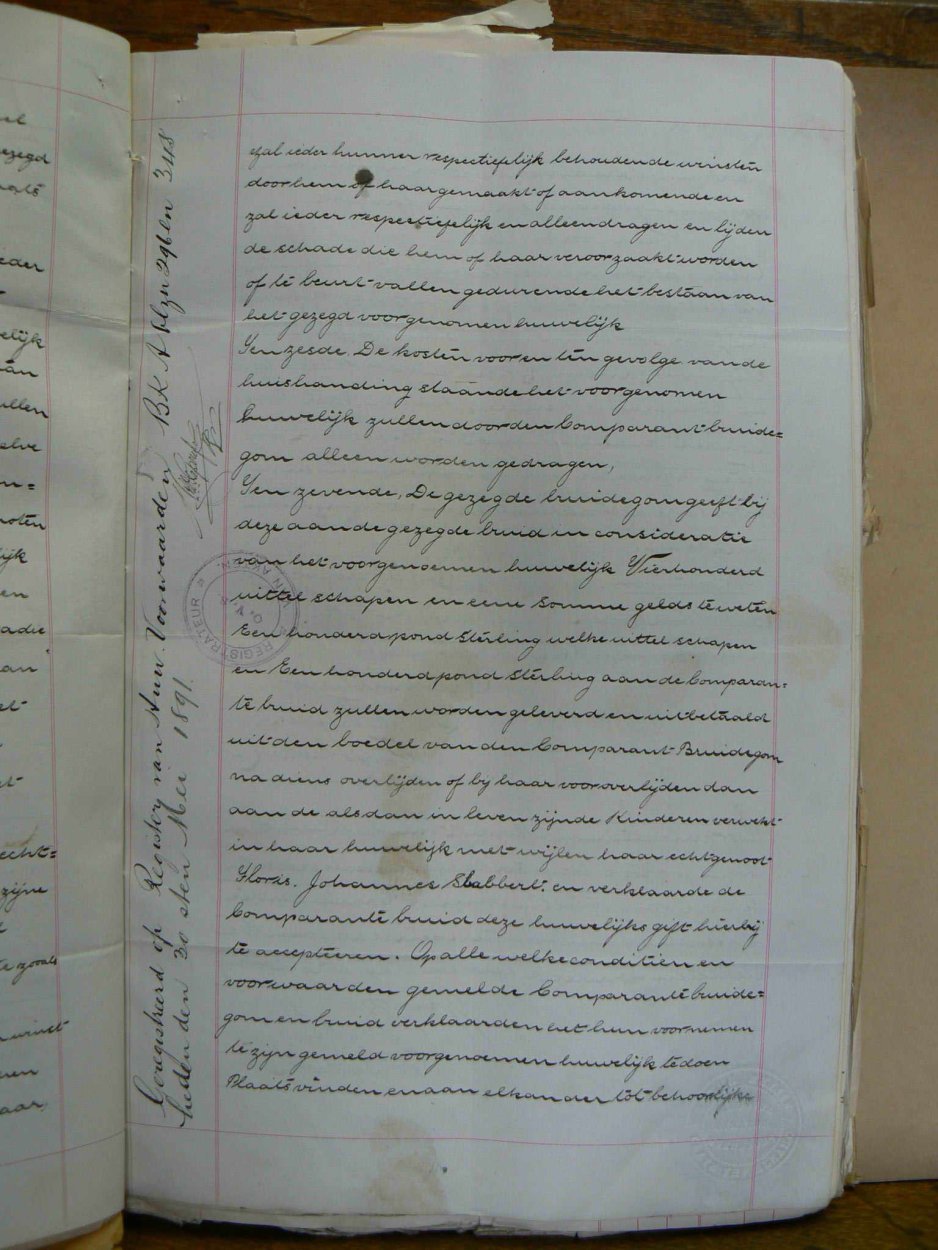 zal ieder hunner respectiefelijk behouden de winsten
door hem of haar gemaakt of aankomende en
zal ieder respectiefelijk en alleen dragen en lijden
de schade die hem of haar veroorzaakt worden
of te beurt vallen gedurende het bestaan van
het gezegd voorgenomen huwelijk
Ten zesde. De kosten voor en ten gevolge van de
huishanding staande het voorgenomen
huwelijk zullen door den Comparant bruide=
gom alleen worden gedragen,
Ten zevende, De gezegde bruidegom geeft bij
deze aan de gezegde bruid in consideratie
van het voorgenoemen huwelijk Vierhonderd
uittel schapen en eene somme gelds te weten
Een honderd pond Sterling welke uittel schapen
en Een honderd pond Sterling aan de Comparan=
te bruid zullen worden geleverd en uitbetaald
uit den boedel van den Comparant Bruidegom
na diens overlijden of by haar vooroverlijden dan
aan de alsdan in leven zijnde Kinderen verwekt
in haar huwelijk met wijlen haar echtgenoot
Floris. Johannes Slabbert. en verklaarde de
Comparante bruid deze huwelijks gift hierbij
te accepteeren. Op alle welke conditiën en
voorwaarden gemelde Comparante bruide=
gom en bruid verklaarden het hun voornemen
te zijn gemeld voorgenoemen huwelijk te doen
Plaats vinden en aan elkander tot behoorlijke
Geregistreerd op Register van Huw. Voorwaarden BK A Blzn 296 en 348
heden den 30 sten Mei 1891.
REGISTRATEUR
O. V. S.
ezegd
elijk
ullen
elve
noten
lijk
en
adie
an
echt=
zijne
te zooals
winst
aar